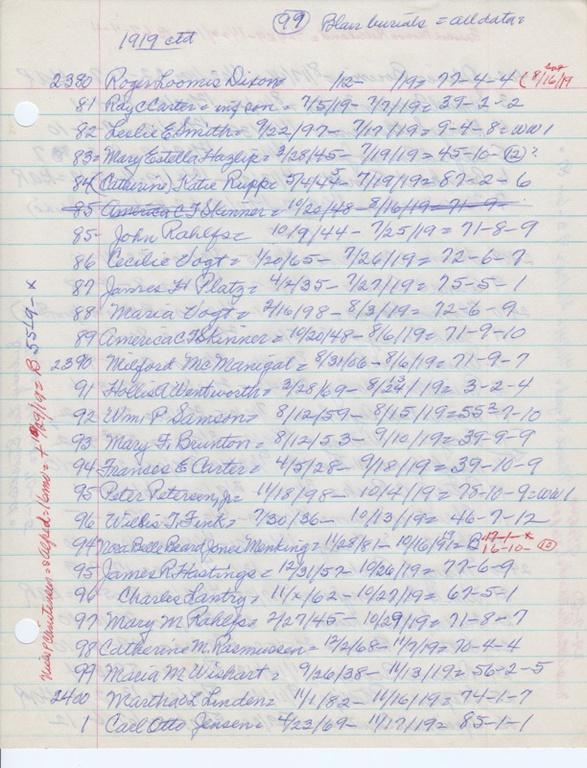 (99) Blair burials = all data =
1919 ctd
2380 Roger Loomis Dixon = /12 - /19 = 77-4-4 (8/16/19
81 Ray C Carter = inf son = 7/5/19 - 7/7/19 = 39-2-2
82 Leslie E Smith = 9/22/97 - 7/17/19 = 9-4-8 = WW1
83 = Mary Estella Hazlip = 3/28/45 - 7/19/19 = 45-10-(12)?
84 (Catherine) Katie Ruppe 5/4/44 - 7/19/19 = 87-2-6
85 America C F Skinner = 10/20/48 - 8/16/19 = 71-9-
85- John Rahlfs = 10/9/44 - 7/25/19 = 71-8-9
86 Cecilie Vogt = 1/20/65 - 7/26/19 = 72-6-7
87 James H Platz = 4/2/35 - 7/27/19 = 75-5-1
88 Maria Vogt = 2/16/98 - 8/3/19 = 72-6-9
89 America C F Skinner = 10/20/48 - 8/6/19 = 71-9-10
2390 Milford McManigal = 8/31/66 - 8/6/19 = 71-9-7
91 Hollis A Wentworth = 3/28/69 - 8/ /19 = 3-2-4
92 Wm P Samson = 8/12/59 - 8/15/19 = 55-7-10
93 Mary F. Brunton = 8/12/53 - 9/10/19 = 39-9-9
94 Frances E Carter = 4/5/28 - 9/18/19 = 39-10-9
95 Peter Petersen, Jr = 11/18/98 - 10/4/19 = 78-10-9 = WW1
96 Willis T. Fink = 7/30/36 - 10/13/19 = 46-7-12
94 Nora Belle Beard Jones Monking = 11/28/81 - 10/16/ = B 17-1-x
16-10-(12)
95 James R Hastings = 12/31/57 - 10/26/19 = 77-6-9
96 Charles Lantry = 11/x/62 - 10/27/19 = 67-5-1
97 Mary M Rahlfs = 2/27/45 - 10/29/19 = 71-8-7
98 Catherine M. Rasmussen = 12/2/68 - 11/7/19 = 70-4-4
99 Maria M Wishart = 9/26/38 - 11/13/19 = 56-2-5
2400 Martha L Linden = 11/1/82 - 11/16/19 = 74-1-7
1 Carl Otto Jensen = 4/23/69 - 11/17/19 = 85-1-1
Christensen = 8 Alfred = 16 mo = + /29/19 = B 55-19-x